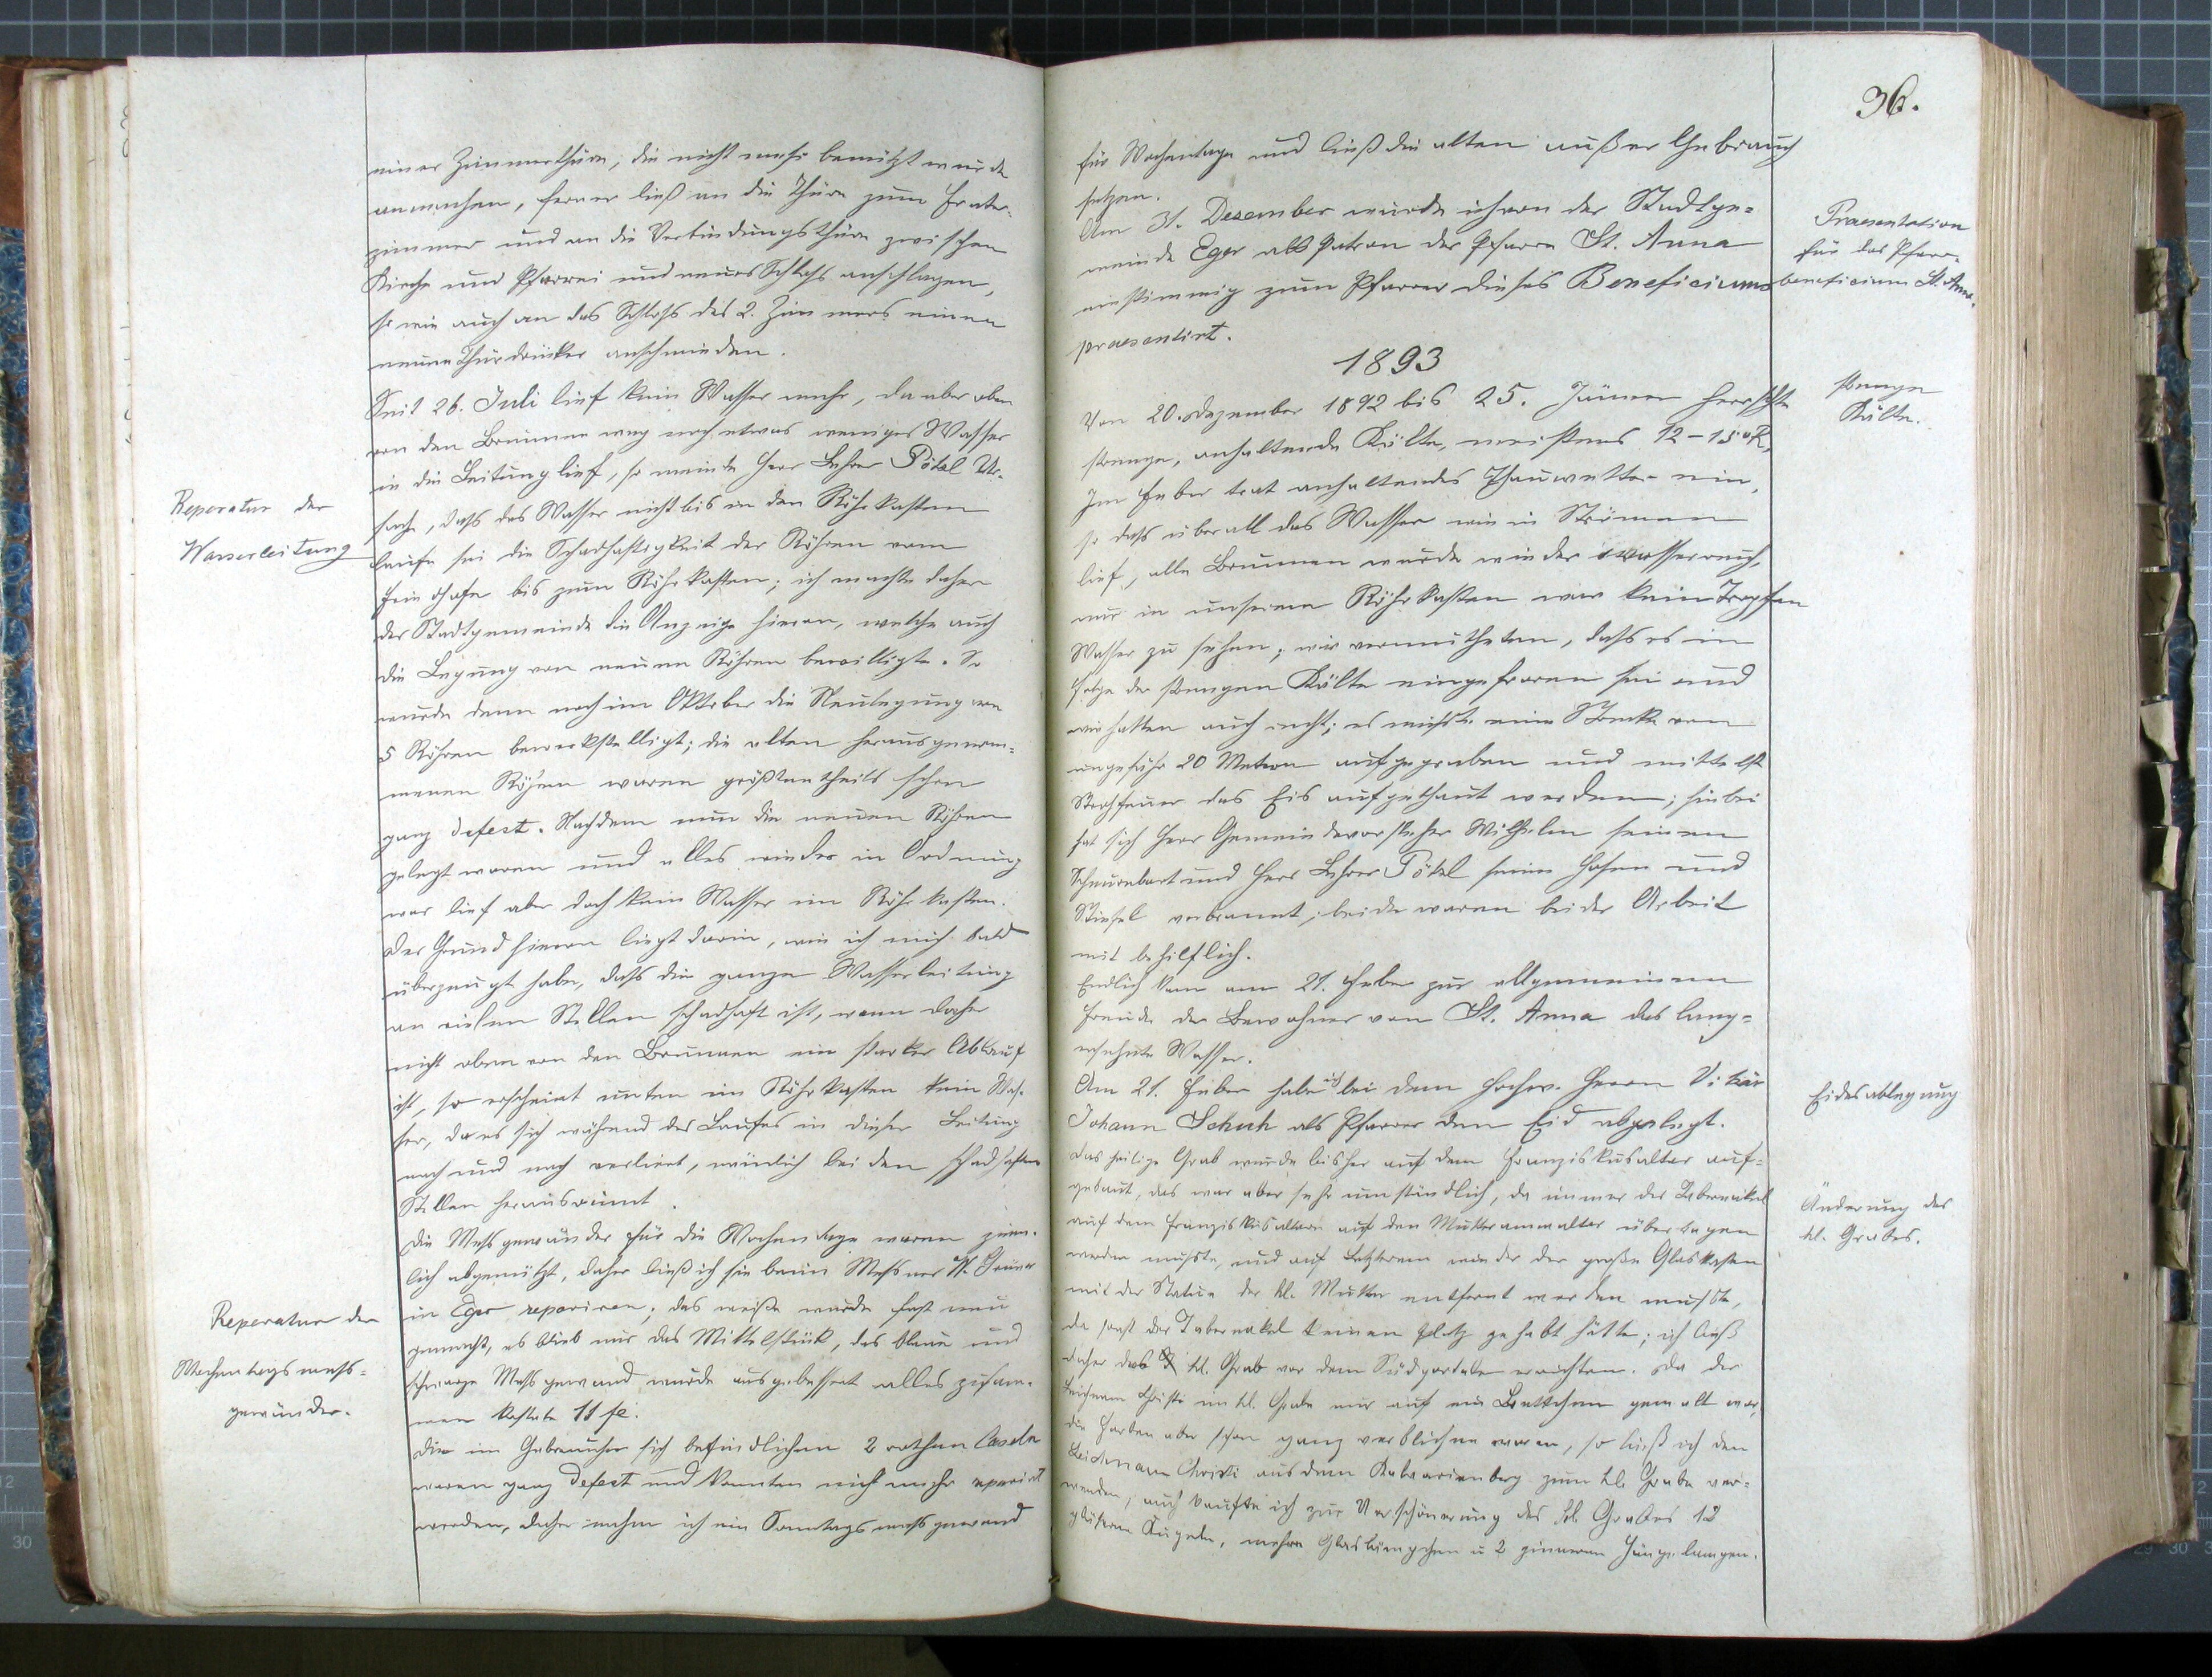 einer Zimmerthüre, die nicht mehr benützt wurde
anmachen, ferner ließ an die Thüre zum Frater-
zimmer und an die Verbindungsthüre zwischen
Kirche und Pfarrei ein neues Schloß anschlagen,
so wie auch an das Schloß des 2. Zimmers einen
neuen Thürdrücker anschmieden.
Reperatur der
Wasserleitung
Seit 26. Juli lief kein Wasser mehr, da aber oben
von den Brunnen weg noch etwas weniges Wasser
in die Leitung lief, so meinte Herr Lehrer Pötzl Ur-
sache, daß das Wasser nicht bis in den Röhrkasten
laufe sei die Schadhaftigkeit der Röhren vom
bis zum Röhrkasten; ich machte daher
der Stadtgemeinde die Anzeige hievon, welche auch
die Legung von neuen Röhren bewilligte. So
wurde denn noch im Oktober die Neulegung von
5 Röhren bewerkstelligt; die alten herausgenom-
menen Röhren waren größtentheils schon
ganz defect. Nachdem nun die neuen Röhren
gelegt waren und alles wieder in Ordnung
war lief aber doch kein Wasser im Röhrkasten.
Der Grund hievon liegt darin, wie ich mich bald
überzeugt habe, daß die ganze Wasserleitung
an vielen Stellen schadhaft ist, wenn daher
nicht oben von den Brunnen ein starker Ablauf
ist, so erscheint unten im Röhrkasten kein Was-
ser, da es sich während des Laufes in dieser Leitung
nach und nach verliert, nämlich bei den schadhaften
Stellen herausrinnt.
Reperatur der
Wochentagsmess-
gewänder.
Die Meßgewänder für die Wochentage waren ziem-
lich abgenützt, daher ließ ich sie beim Meßner W. Grüner
in Eger repariren; das weiße wurde fast neu
gemacht, es blieb nur das Mittelstück, das blaue und
schwarze Meßgewand wurde ausgebessert alles zusam-
men kostete 11 fl.
Die im Gebrauche sich befindlichen 2 rothen Caseln
waren ganz defect und konnten nicht mehr reparirt
werden, daher nahm ich ein Sonntagsmeßgewand
36.
für Wochentage und ließ die alten außer Gebrauch
setzen.
Praesentation
für das Pfarr-
beneficium St. Anna.
Am 31. Dezember wurde ich von der Stadtge-
meinde Eger als Patron der Pfarre St. Anna
einstimmig zum Pfarrer dieses Beneficiums
praesentirt.
1893
strenge
Kälte.
Von 20. Dezember 1892 bis 25. Jänner herrschte
strenge, anhaltende Kälte, meistens 12-15°R,
Im Feber trat anhaltendes Thauwetter ein,
so daß überall das Wasser wie in Strömen
lief, alle Brunnen wurde wieder wasserreich,
nur in unserem Röhrkasten war kein Tropfen
Wasser zu sehen; wir vermutheten, daß es in
Folge der strengen Kälte eingefroren sei und
wir hatten auch recht; es mußte eine Strecke von
ungefähr 20 Metern aufgegraben und mittelst
Strohfeuer das Eis aufgethaut werden; hiebei
hat sich Herr Gemeindevorsteher Wilhelm seinen
Schnurrbart und Herr Lehrer Pötzl seine Hosen und
Stiefel verbrannt; beide waren bei der Arbeit
mit behilflich.
Endlich kam am 21. Feber zur allgemeinen
Freude der Bewohner von St. Anna das lang-
ersehnte Wasser.
Eidesablegung
Am 21. Feber habe ich bei dem hochw. Herrn Vikär
Johann Schuh als Pfarrer den Eid abgelegt.
Änderung des
hl. Grabes.
Das heilige Grab wurde bisher auf dem Franziskusaltar auf-
gebaut, das war aber sehr umständlich, da immer der Tabernakel
auf dem Franziskusaltare auf den Mutteranna­altar übertragen
werden mußte, und auf Letzterem wieder der große Glaskasten
mit der Statue der hl. Mutter entfernt werden mußte,
da sonst der Tabernakel keinen Platz gehabt hätte; ich ließ
daher das hl. Grab vor dem Südportale errichten. Da der
Leichnam Christi im hl. Grabe nur auf ein Brettchen gemalt war,
die Farben aber schon ganz verblichen waren, so ließ ich den
Leichnam Christi aus dem Kalvarienberg zum hl. Grabe ver-
wenden; auch kaufte ich zur Verschönerung des hl. Grabes 12
gläserne Kugeln, mehre Glaslämpchen u 2 zinnerne Hängelampen.